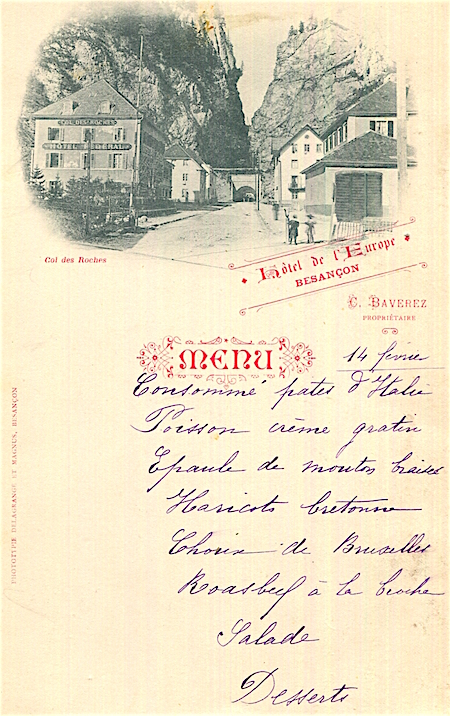 COL DES ROCHES
HÔTEL FÉDÉRAL
Col des Roches
Hôtel de l'Europe
BESANÇON
C. BAVEREZ
PROPRIÉTAIRE
MENU
14 février
Consommé pates d'Italie
Poisson crème gratin
Epaule de mouton braisée
Haricots bretonne
Choux de Bruxelles
Roasbeef à la broche
Salade
Desserts
PHOTOTYPIE DELAGRANGE ET MAGNUS, BESANÇON